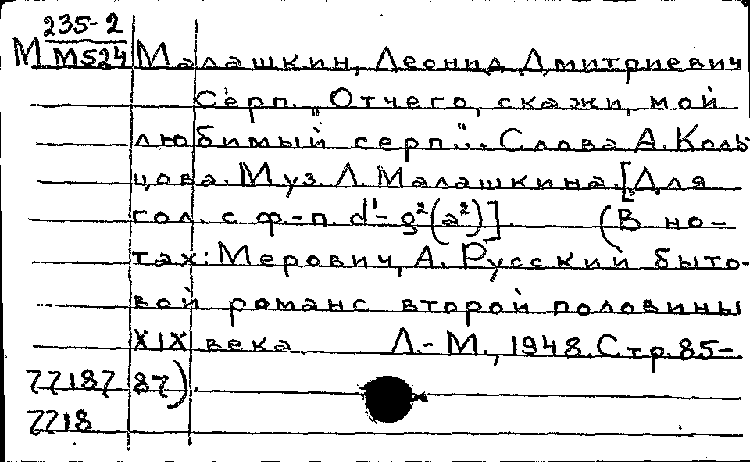 235-2
М М524 Малашкин, Леонид Дмитриевич
Серп. „Отчего, скажи, мой
любимый серп"... Слова А. Коль-
цова. Муз. Л. Малашкина. [Для
гол. с ф-п. d¹-g²(a²)] (В но-
тах: Мерович, А. Русский быто-
вой романс второй половины
XIX века. Л.-М., 1948. Стр. 85-
77187 87).
7718